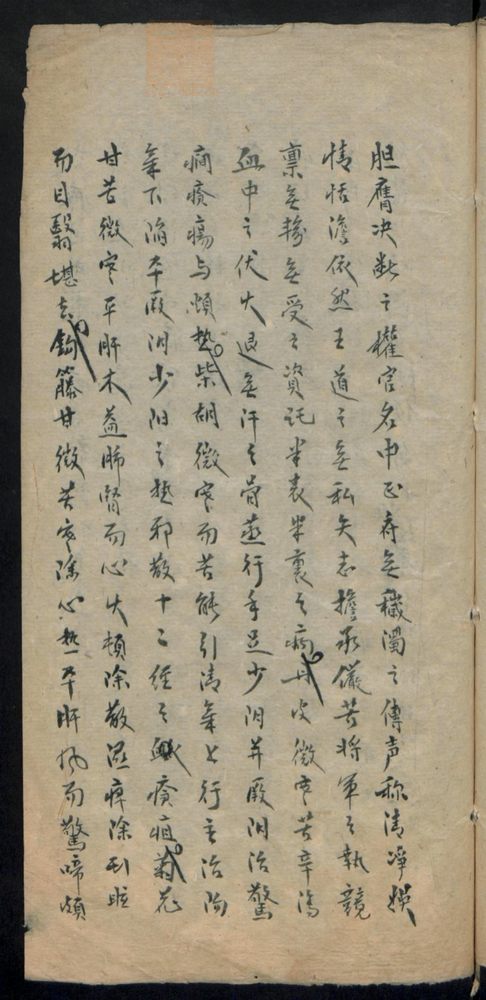 胆膺决断之權官名中正府無穢濁之傳声称清淨娱
情恬澹依然王道之無私矢志擔承儼若将軍之執競
禀無轉無受之資託半表半裏之病丹皮微寒苦辛瀉
血中之伏火退無汗之骨蒸行手足少阴并厥阴治驚
痫瘡瘍与煩热柴胡微寒而苦能引清氣上行主治陷
氣下陷平厥阴少阳之热邪散十二经之瘡疽菊花
甘苦微寒平肝木益肺腎而心火頓除散濕痺除刺眩
而目翳堪去鈎藤甘微苦寒除心热平肝风而驚啼頓